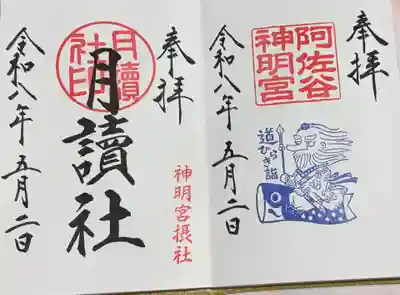 奉拝
阿佐谷
神明宮
道
ひらき
詣
令和八年五月二日
奉拝
月讀
社印
月讀社
神明宮摂社
令和八年五月二日